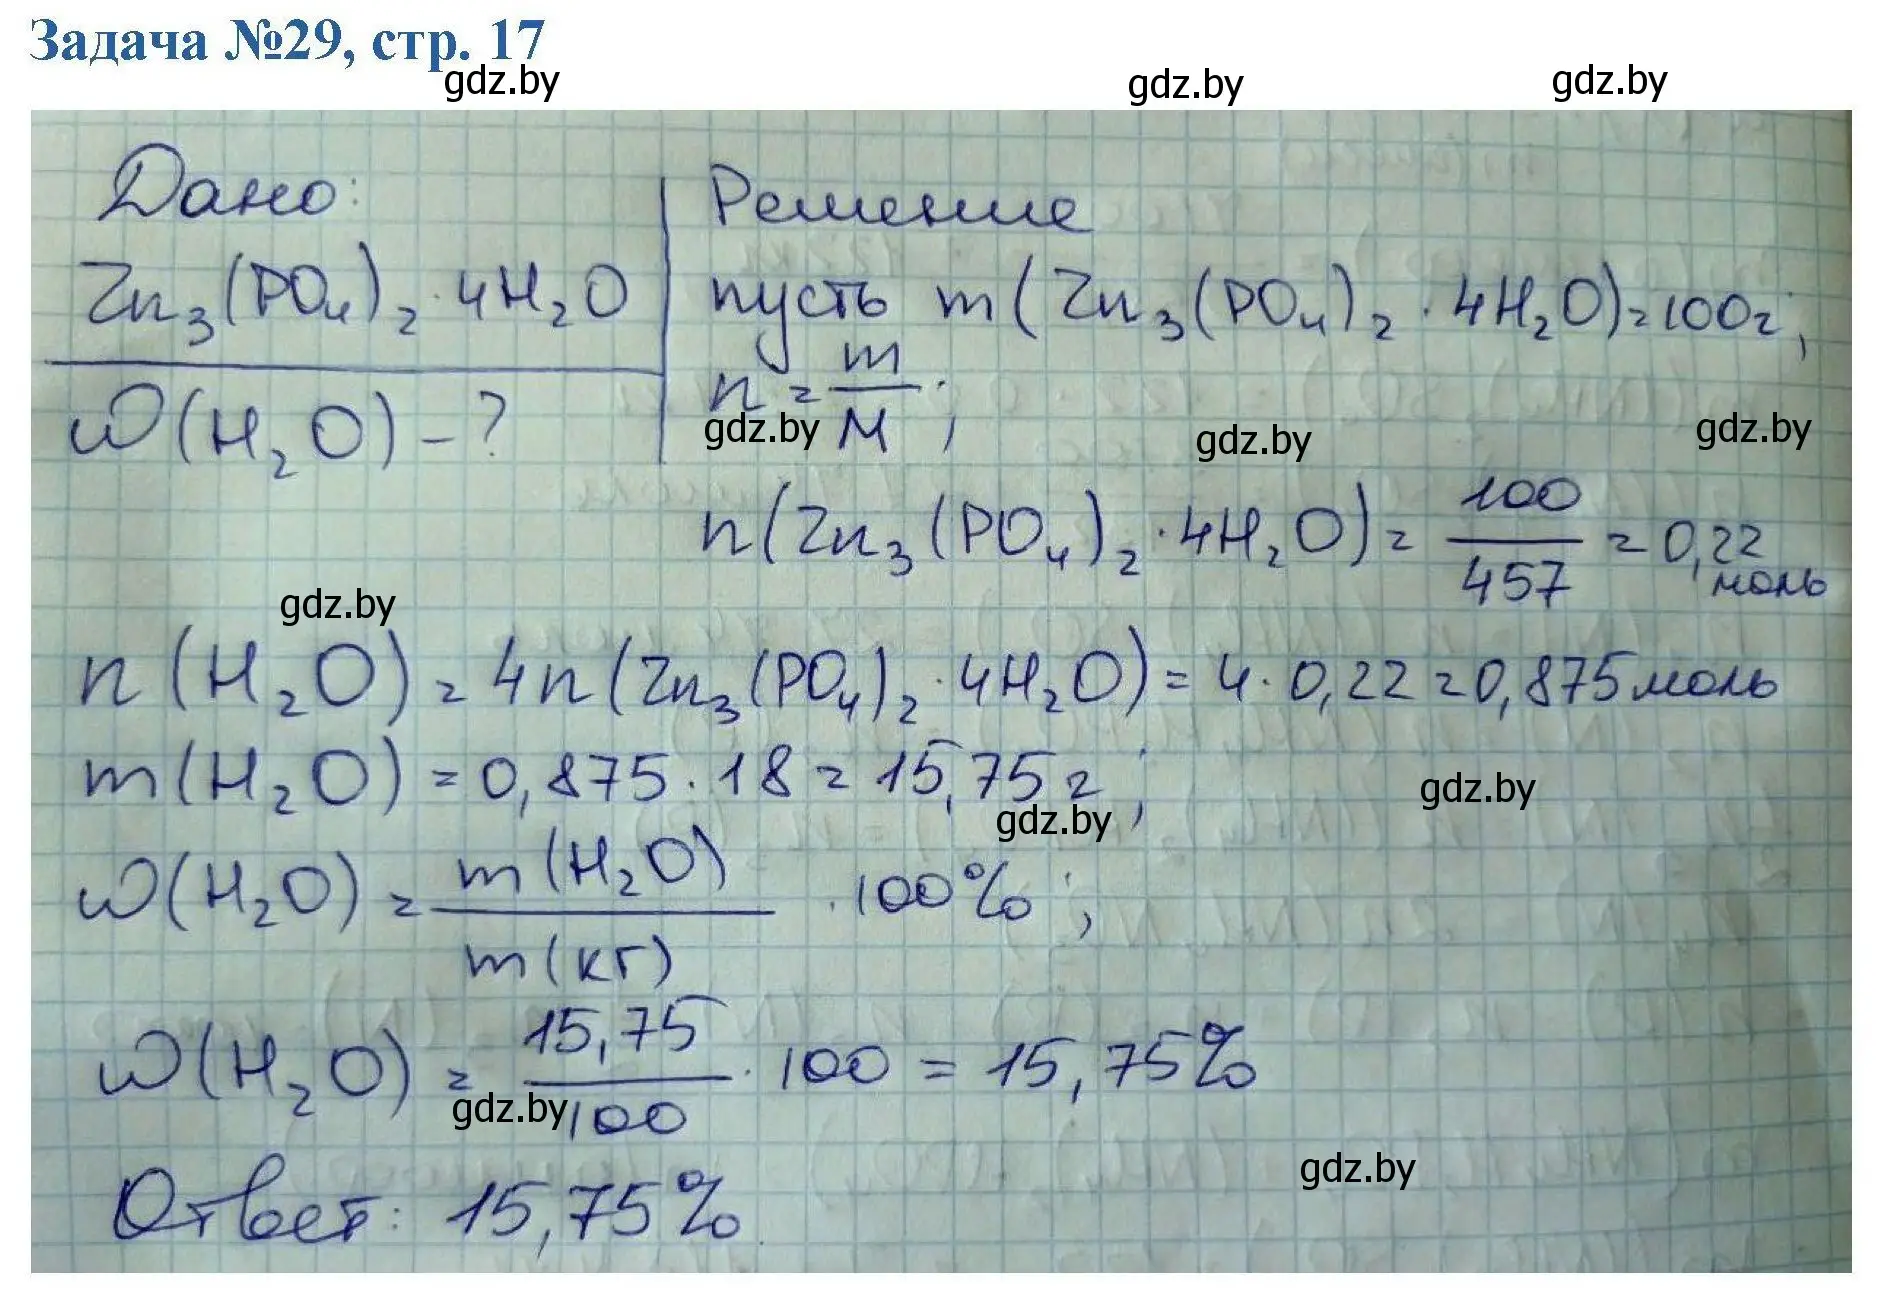 Задача №29, стр. 17
gdz.by gdz.by gdz.by
Дано: Решение
Zn₃(PO₄)₂·4H₂O пусть m(Zn₃(PO₄)₂·4H₂O)=100г;
n = m/M;
ω(H₂O) - ?
gdz.by gdz.by gdz.by
n(Zn₃(PO₄)₂·4H₂O) = 100/457 = 0,22 моль
gdz.by
n(H₂O) = 4n(Zn₃(PO₄)₂·4H₂O) = 4·0,22 = 0,875 моль
m(H₂O) = 0,875·18 = 15,75 г;
gdz.by gdz.by
ω(H₂O) = m(H₂O)/m(кг) · 100%;
ω(H₂O) = 15,75/100 · 100 = 15,75%
gdz.by
gdz.by
Ответ: 15,75%